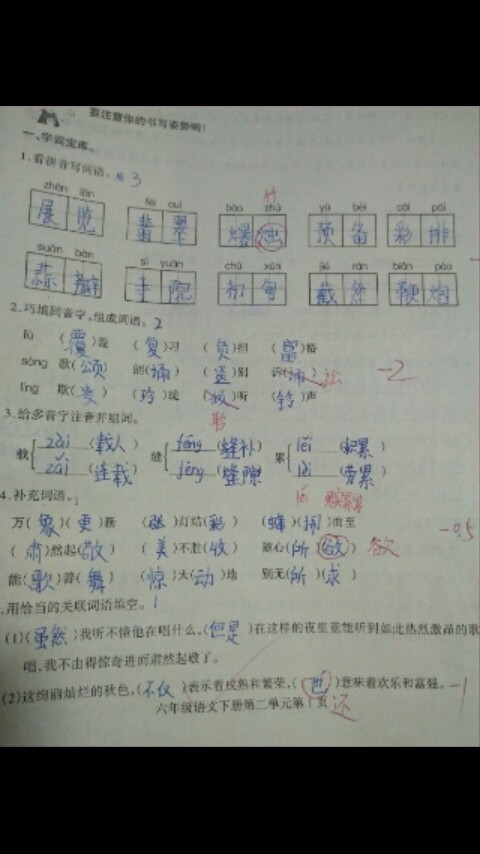 要注意你的书写姿势哟!
一、字词宝库。
1.看拼音写词语。 3
zhǎn lǎn fěi cuì bào zhú yù bèi cǎi pái
展览 翡翠 爆 预备 彩排 竹
suàn bàn sì yuàn chú xùn jié rán biān pào
蒜瓣 寺院 截然 鞭炮
2.巧填同音字,组成词语。 2
fù (覆)盖 (复)习 (负)担 (富)裕
sòng 歌(颂) 朗(诵) (送)别 诉(诵) 讼 -2
líng 欺(凌) (玲)珑 听 (铃)声
聆
3.给多音字注音并组词。
载 zǎi (载人) 缝 féng (缝补) 累 lěi (积累)
zǎi (连载) fèng (缝隙) lèi (劳累)
4.补充词语。
万(象)(更)新 (张)灯结(彩) (蜂)(拥)而至 -0.5
(肃)然起(敬) (美)不胜(收) 随心(所)(欲) 欲
能(歌)善(舞) (惊)天(动)地 别无(所)(求)
.用恰当的关联词语填空。 1
(1)(虽然)我听不懂他在唱什么,(但是)在这样的夜里竟能听到如此热烈激昂的歌
唱,我不由得惊奇进而肃然起敬了。
(2)这绚丽灿烂的秋色,(不仅)表示着成熟和繁荣,(也)意味着欢乐和富强。 -1
六年级语文下册第二单元第1页 还